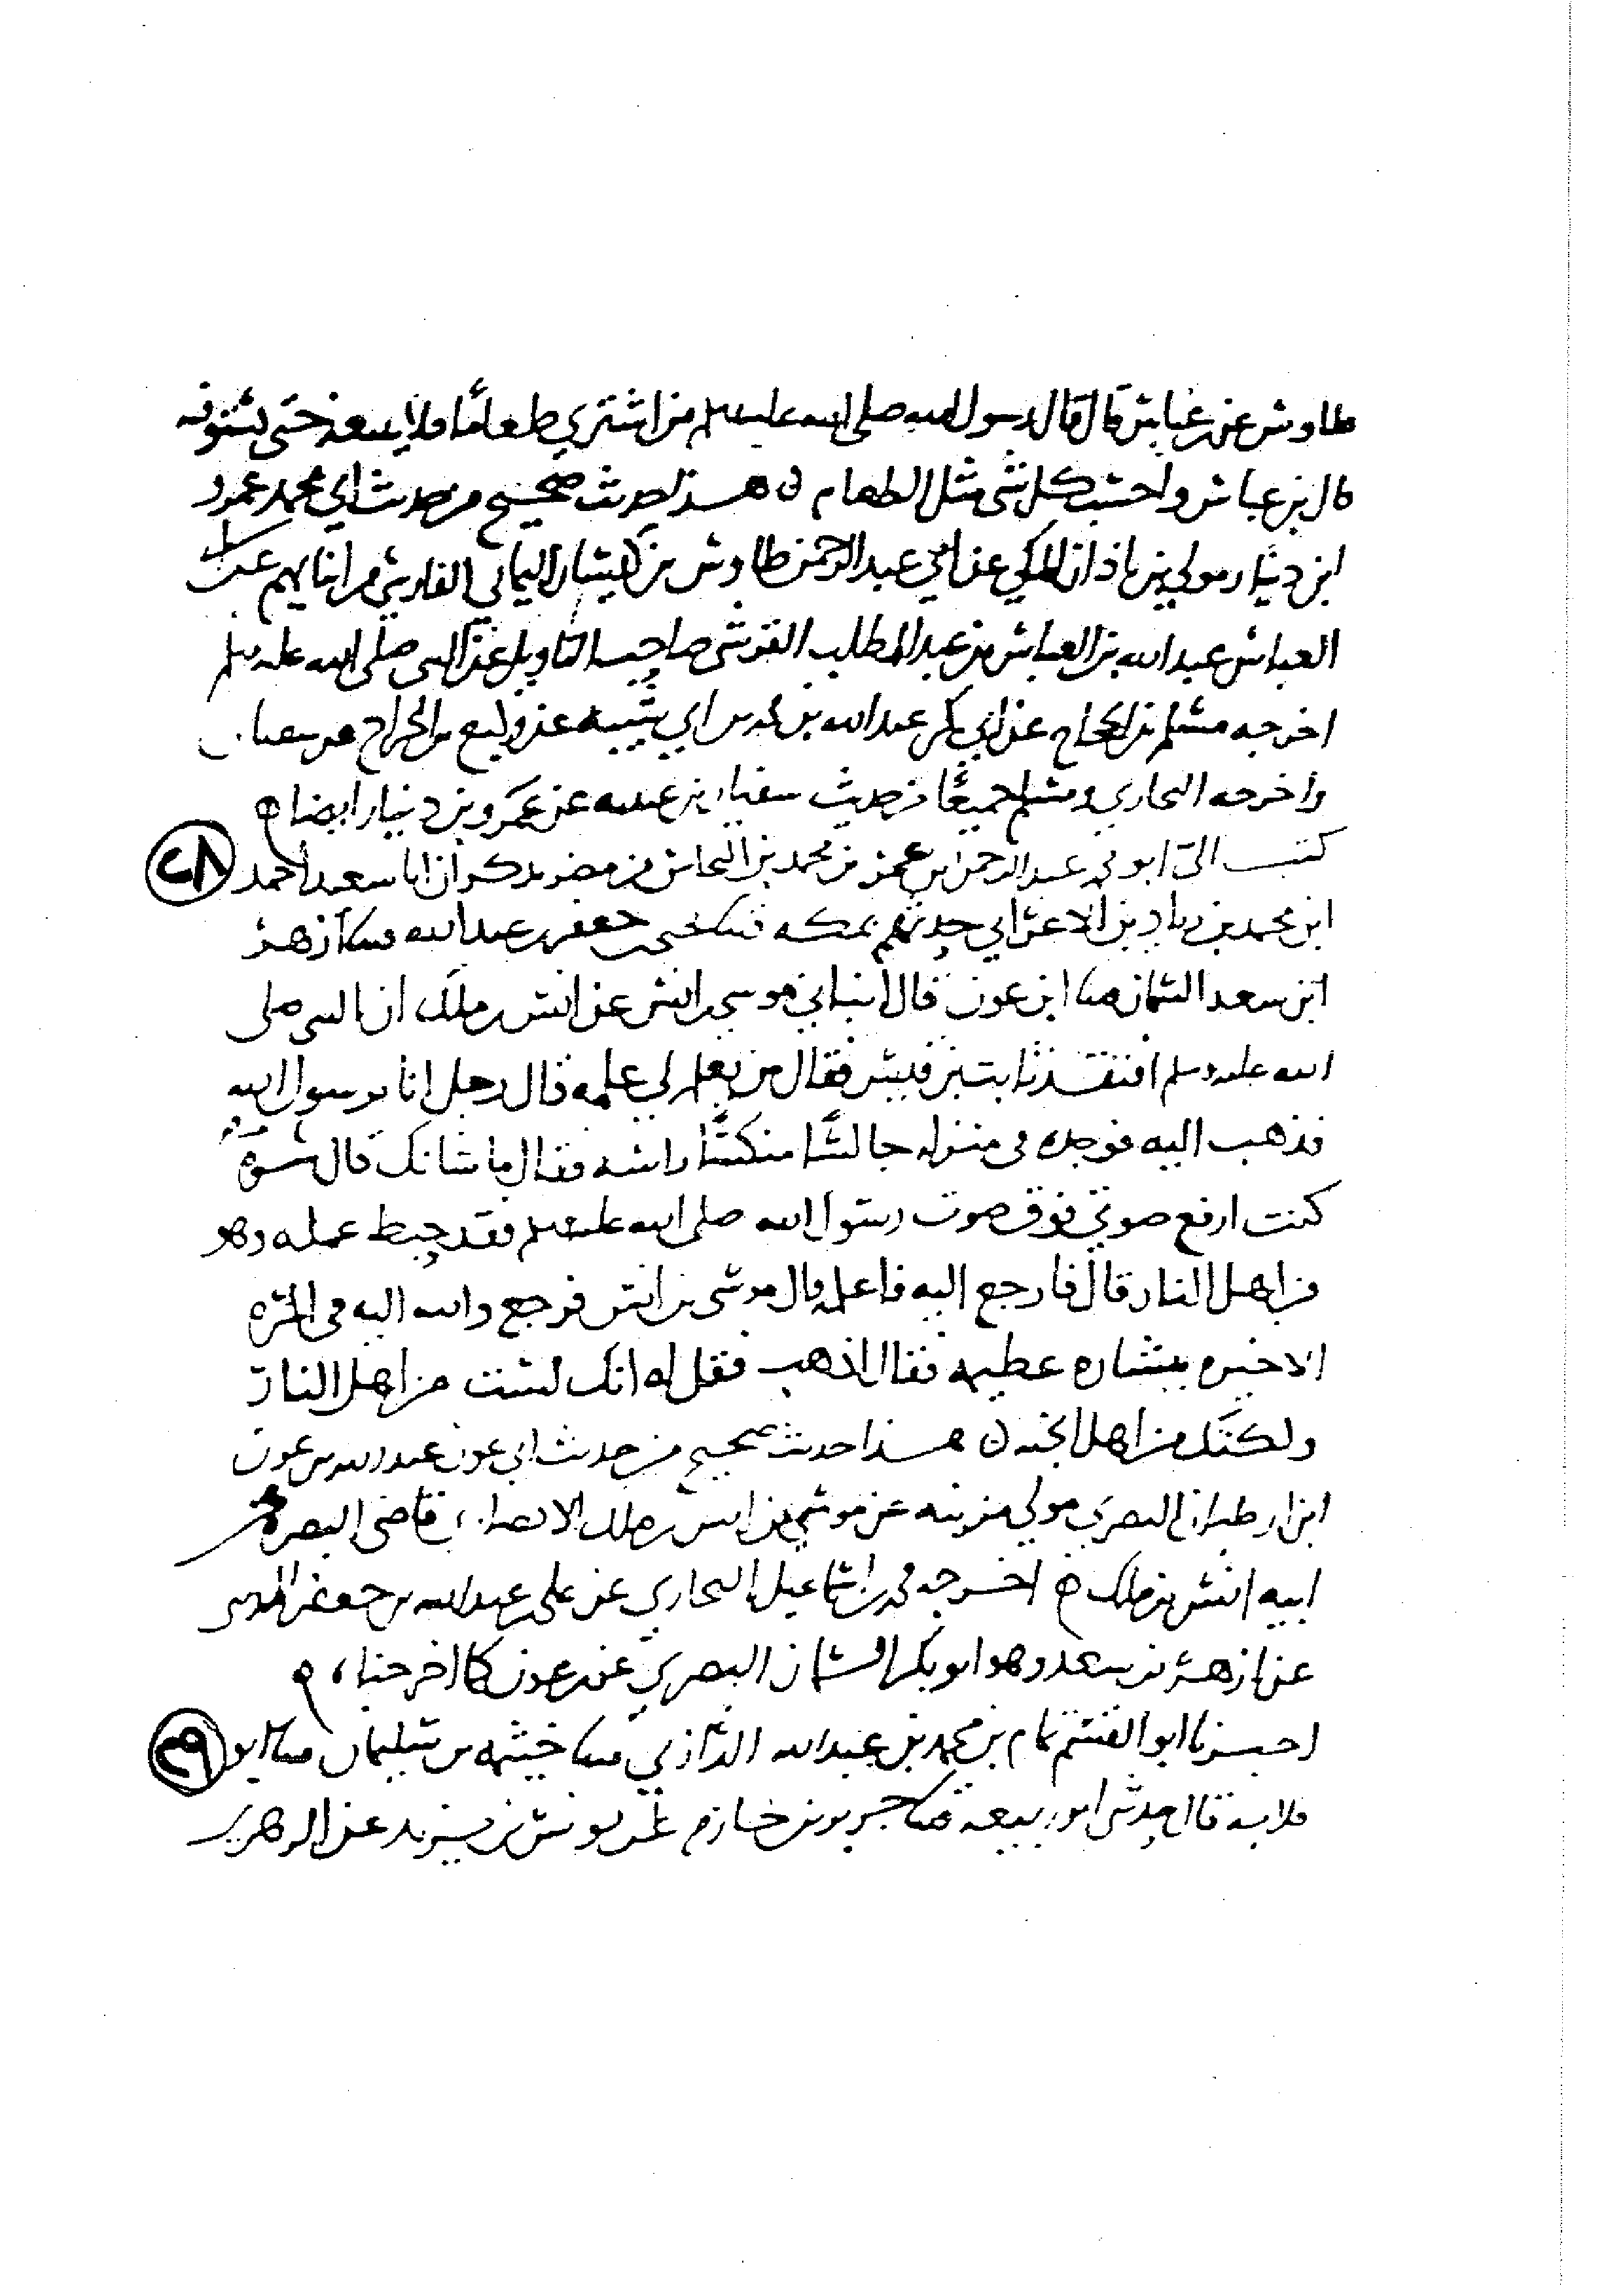 طاوس عن بن عباس قال قال رسول الله صلى الله عليه وسلم من اشترى طعاما فلا يبيعه حتى يستوفيه
قال بن عباس واحسب كل شي مثل الطعام ن هذا حديث صحيح من حديث ابي محمد عمرو
ابن دينار مولى بن باذان المكي عن ابي عبد الرحمن طاوس بن كيسان اليماني الفارسي من ابنايهم عن ابي
العباس عبد الله بن العباس بن عبد المطلب القرشي صاحب التاويل عن النبي صلى الله عليه وسلم
اخرجه مسلم بن الحجاج عن ابي بكر عبد الله بن محمد بن ابي شيبه عن وكيع بن الجراح عن سفيان
واخرجه البخاري ومسلم جميعا من حديث سفيان بن عيينه عن عمرو بن دينار ايضا ه
كتب الي ابو محمد عبد الرحمن بن عمر بن محمد بن النحاس من مصر يذكر ان ابا سعيد احمد ٢٨
ابن محمد بن زياد بن الاعرابي حدثهم بمكه ثنا يحيى بن جعفر بن عبد الله ثنا ازهر
ابن سعد السمان ثنا ابن عون قال انباني موسى بن انس عن انس بن ملك ان النبي صلى
الله عليه وسلم افتقد ثابت بن قيس فقال من يعلم لي علمه قال رجل انا يرسول الله
فذهب اليه فوجده في منزله جالسا منكسا راسه فقال ما شانك قال شر
كنت ارفع صوتي فوق صوت رسول الله صلى الله عليه وسلم فقد حبط عمله وهو
من اهل النار قال فارجع اليه فاعلمه قال موسى بن انس فرجع والله اليه في المره
الاخيره ببشاره عظيمه فقال اذهب فقل له انك لست من اهل النار
ولكنك من اهل الجنه ن هذا حديث صحيح من حديث ابي عون عبد الله بن عون
ابن ارطبان البصري مولى مزينه عن موسى بن انس بن ملك الانصاري قاضي البصره عن
ابيه انس بن ملك ه اخرجه محمد بن اسماعيل البخاري عن علي بن عبد الله بن جعفر المديني
عن ازهر بن سعد وهو ابو بكر السمان البصري عن بن عون كما اخرجناه ه
اخبرنا ابو القسم تمام بن محمد بن عبد الله الرازي ثنا خيثمه بن سليمان ثنا ابو ٢٩
قلابه قال حدثني ابو ربيعه ثنا جرير بن حازم عن يونس بن يزيد عن الزهري